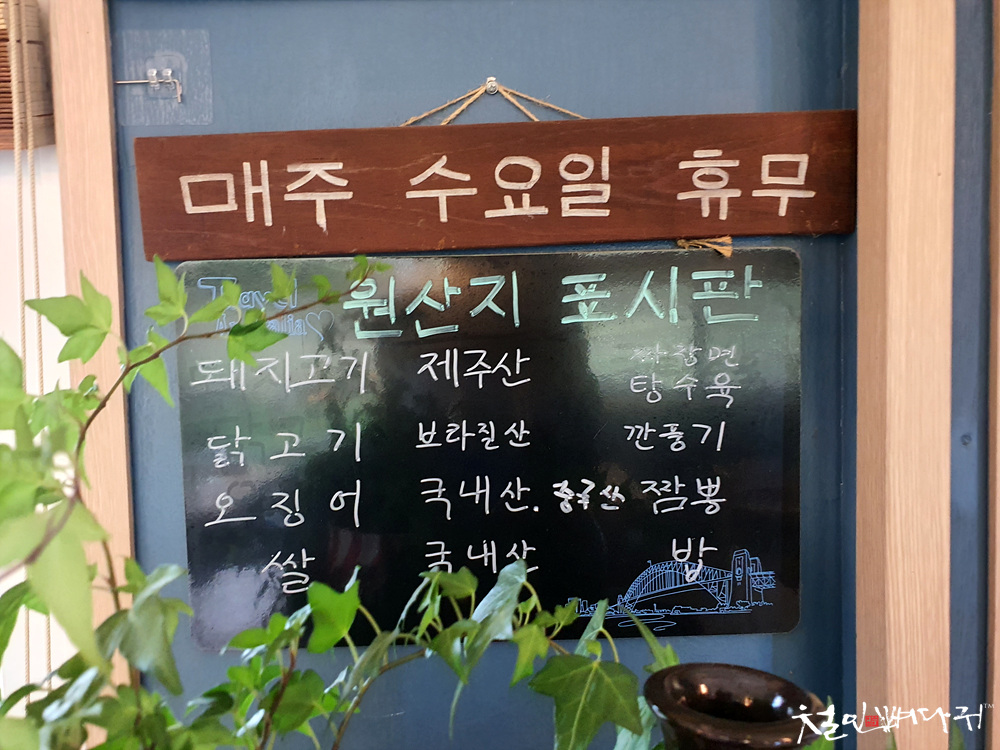 매주 수요일 휴무
Travel
원산지 표시판
돼지고기 제주산 짜장면
탕수육
닭고기 브라질산 깐풍기
오징어 국내산. 중국산 짬뽕
쌀 국내산 밥